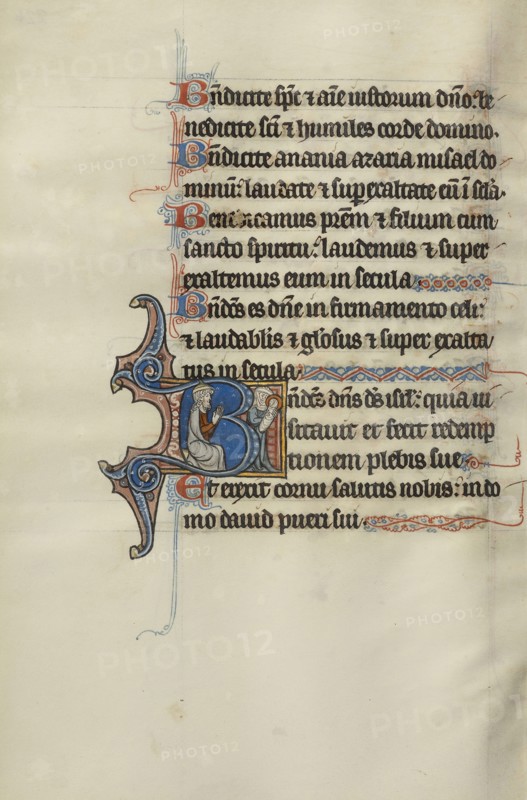 Bn̄dicite sp̄c ⁊ aīe iustorum dn̄o: be
nedicite sc̄i ⁊ humiles corde domino.
Bn̄dicite anania azaria misael do
minū: laudate ⁊ sup̱exaltate eū ī sc̄la.
Benedicamus pr̄em ⁊ filium cum
sancto spiritu: laudemus ⁊ super
exaltemus eum in secula.
Bn̄dc̄s es dn̄e in firmamento celi:
⁊ laudabl̄is ⁊ gl̄osus ⁊ super exalta
tus in secula.
Bn̄dc̄s dn̄s d̄s isrl̄: quia ui
sitauit et fecit redemp
tionem plebis sue.
Et erexit cornu salutis nobis: in do
mo dauid pueri sui.
PHOTO12